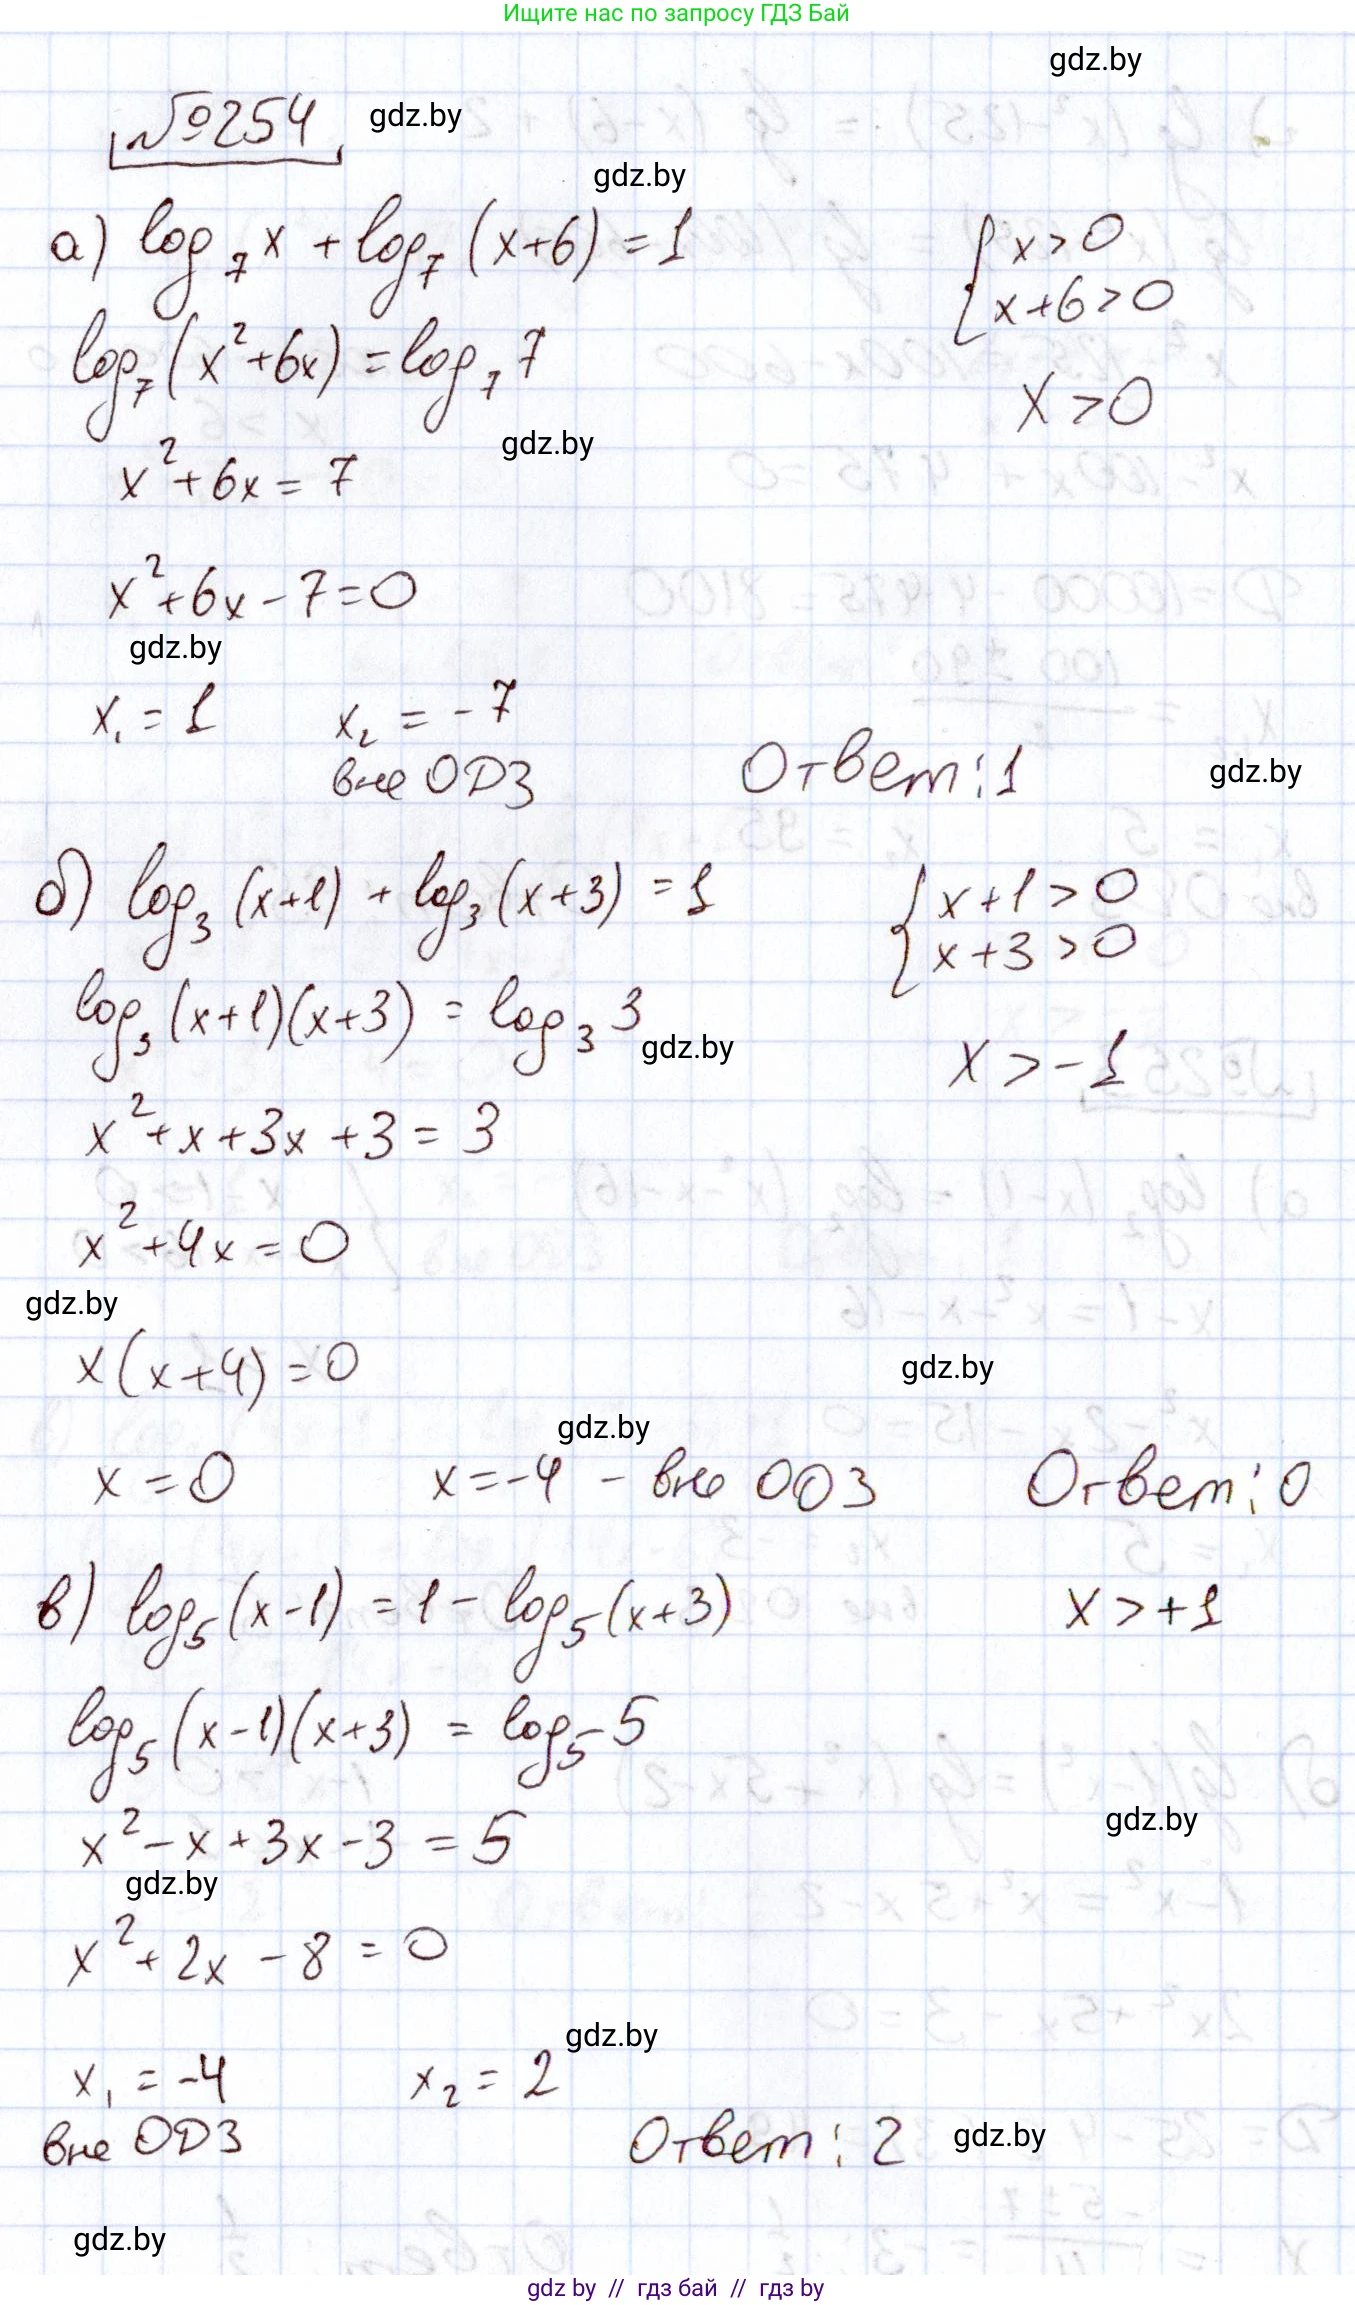 Ищите нас по запросу ГДЗ Бай
gdz.by
№254 gdz.by
gdz.by
а) log₇ x + log₇ (x+6) = 1
{ x > 0
x+6 > 0
log₇ (x²+6x) = log₇ 7
x > 0
gdz.by
x²+6x = 7
x²+6x-7=0
gdz.by
x₁ = 1 x₂ = -7
вне ОДЗ
Ответ: 1 gdz.by
б) log₃ (x+1) + log₃ (x+3) = 1
{ x+1 > 0
x+3 > 0
log₃ (x+1)(x+3) = log₃ 3
gdz.by
x > -1
x²+x+3x+3 = 3
x²+4x=0
gdz.by
x(x+4)=0
gdz.by
gdz.by
x = 0 x=-4 - вне ОДЗ Ответ: 0
в) log₅ (x-1) = 1 - log₅ (x+3) x > +1
log₅ (x-1)(x+3) = log₅ 5
gdz.by
x² - x + 3x - 3 = 5
gdz.by
x² + 2x - 8 = 0
gdz.by
x₁ = -4 x₂ = 2
вне ОДЗ
Ответ: 2 gdz.by
gdz.by
gdz by // гдз бай // гдз by